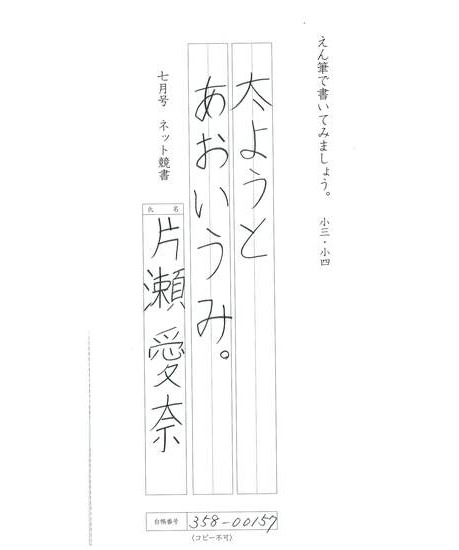 えん筆で書いてみましょう。 小三・小四
太ようと
あおいうみ。
七月号 ネット競書
氏名
片瀬愛奈
台帳番号 358-00157
(コピー不可)